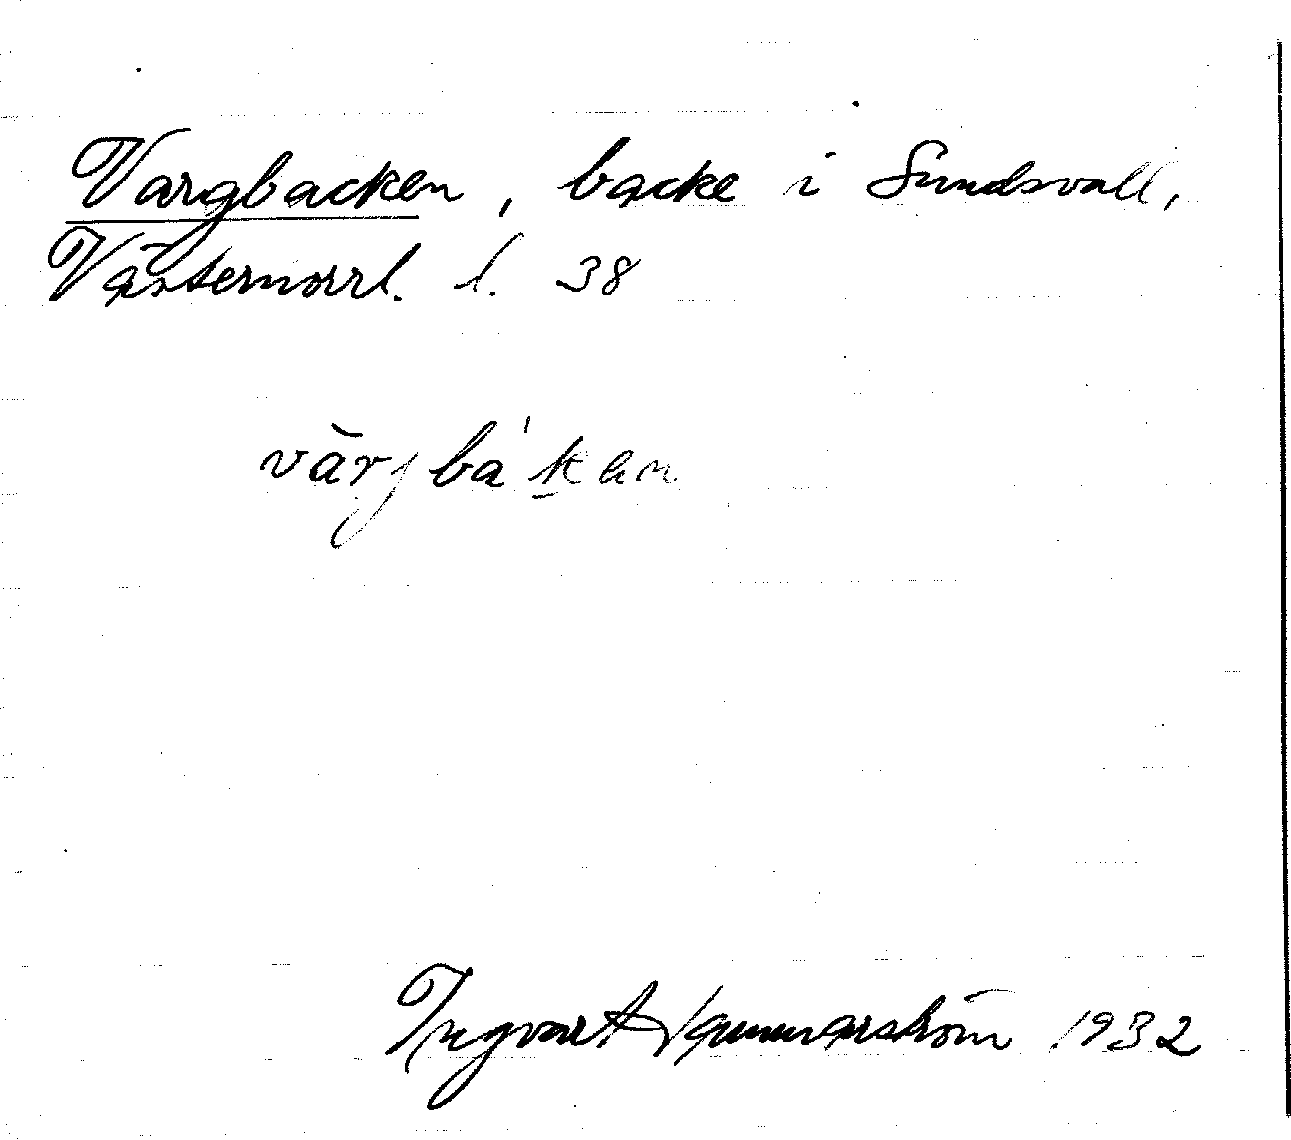 Vargbacken, backe i Sundsvall,
Västernorrl. l. 38
vàrjbá'kan
Ingvart Hammarström 1932